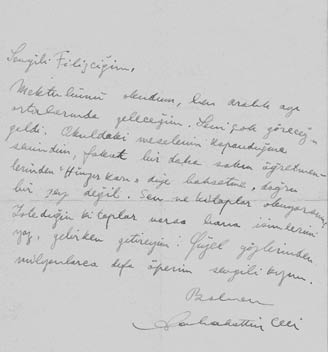 Sevgili Filizciğim,
Mektubunu okudum, ben aralık ayı
ortalarında geleceğim. Seni çok göreceğim
geldi. Okuldaki meselenin kapandığına
sevindim, fakat bir daha sakın öğretmen-
lerinden "Hınzır karı" diye bahsetme, doğru
bir şey değil. Sen ne kitaplar okuyorsun?
İstediğin kitaplar varsa bana isimlerini
yaz, gelirken getireyim. Güzel gözlerinden
milyonlarca defa öperim sevgili kızım.
Baban
Sabahattin Ali